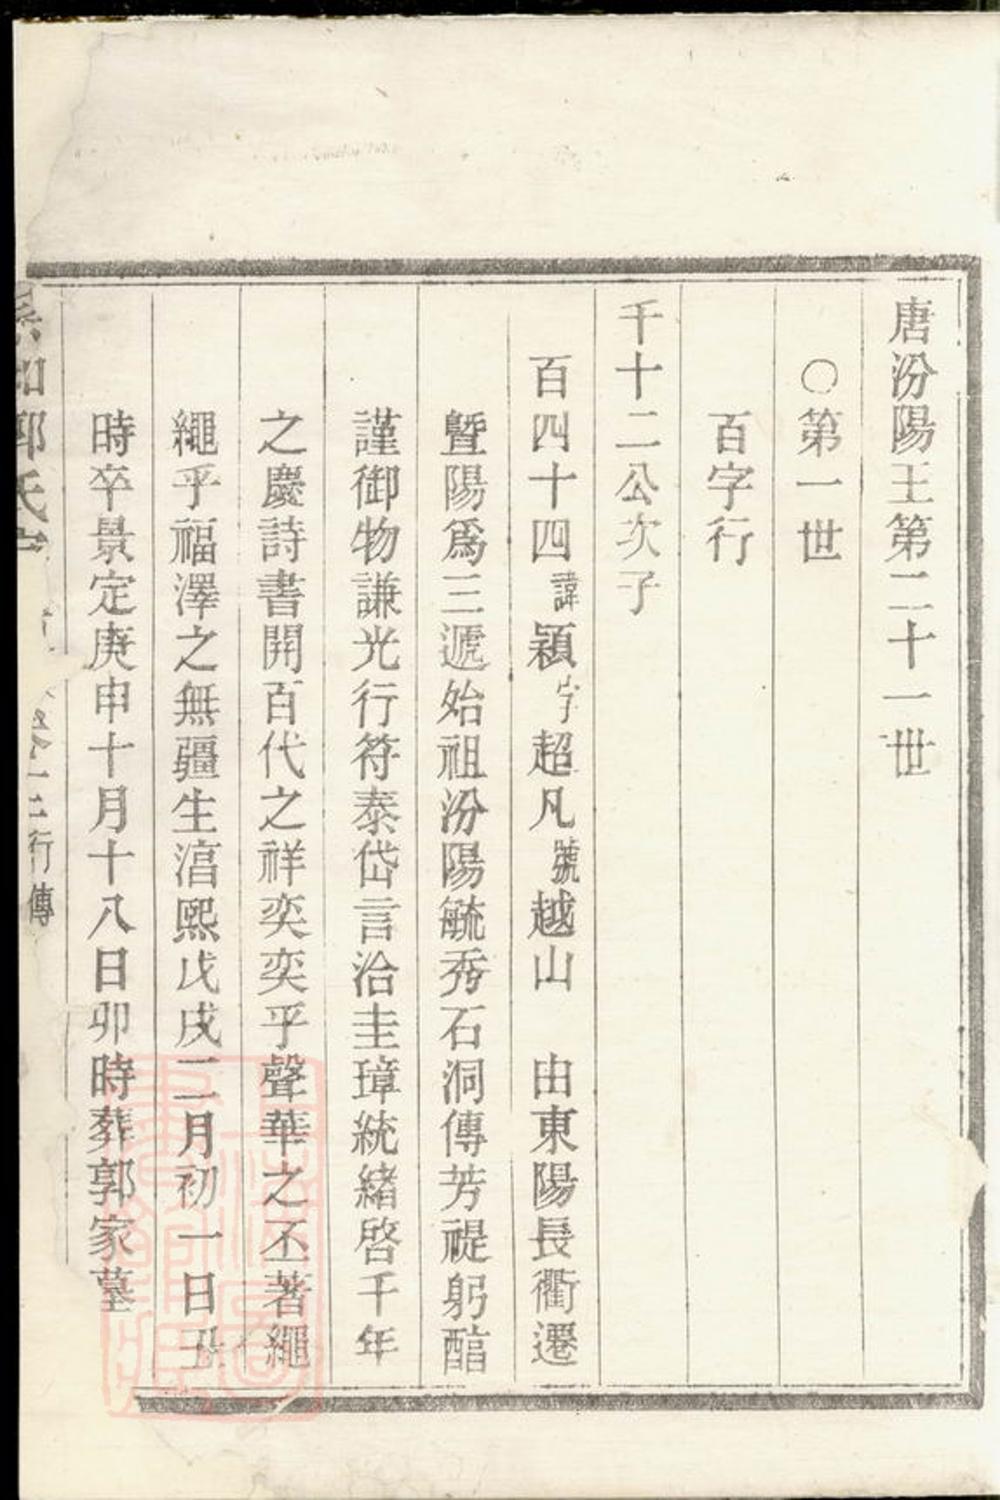 唐汾陽王第二十一世
○第一世
百字行
千十二公次子
百四十四諱穎字超凡號越山　由東陽長衢遷
曁陽爲三遞始祖汾陽毓秀石洞傳芳禔躬醕
謹御物謙光行符泰岱言洽圭璋統緒啓千年
之慶詩書開百代之祥奕奕乎聲華之丕著繩
繩乎福澤之無疆生湻熙戊戌二月初一日丑
時卒景定庚申十月十八日卯時葬郭家墓
郭氏宗 行傳